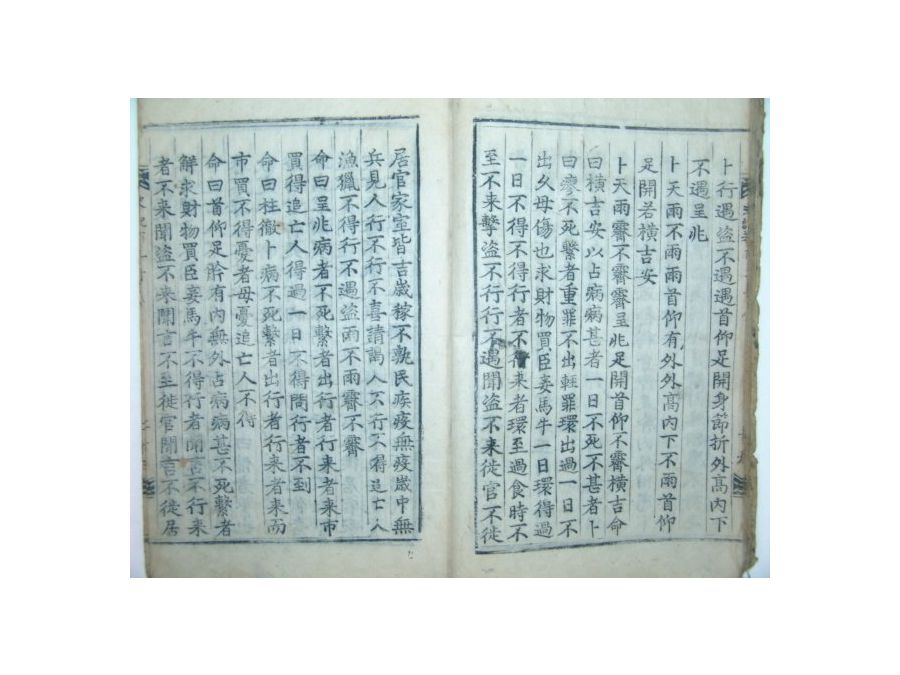 卜行遇盜不遇遇首仰足開身節折外高內下
不遇呈兆
卜天雨不雨雨首仰有外外高內下不雨首仰
足開若橫吉安
卜天雨霽不霽霽呈兆足開首仰不霽橫吉命
曰橫吉安以占病病甚者一日不死不甚者卜
曰瘳不死繫者重罪不出輕罪環出過一日不
出久毋傷也求財物買臣妾馬牛一日環得過
一日不得不得行者不得来者環至過食時不
至不来擊盜不行行不遇聞盜不来徒官不徙
居官家室皆吉歲稼不孰民疾疫無疫歲中無
兵見人行不行不喜請謁人不行不得追亡人
漁獵不得行不遇盜雨不雨霽不霽
命曰呈兆病者不死繫者出行者行来者来市
買得追亡人得過一日不得問行者不到
命曰柱徹卜病不死繫者出行者行来者来而
市買不得憂者毋憂追亡人不得
命曰首仰足肣有內無外占病病甚不死繫者
解求財物買臣妾馬牛不得行者聞言不行来
者不来聞盜不来聞言不至徙官聞言不徙居